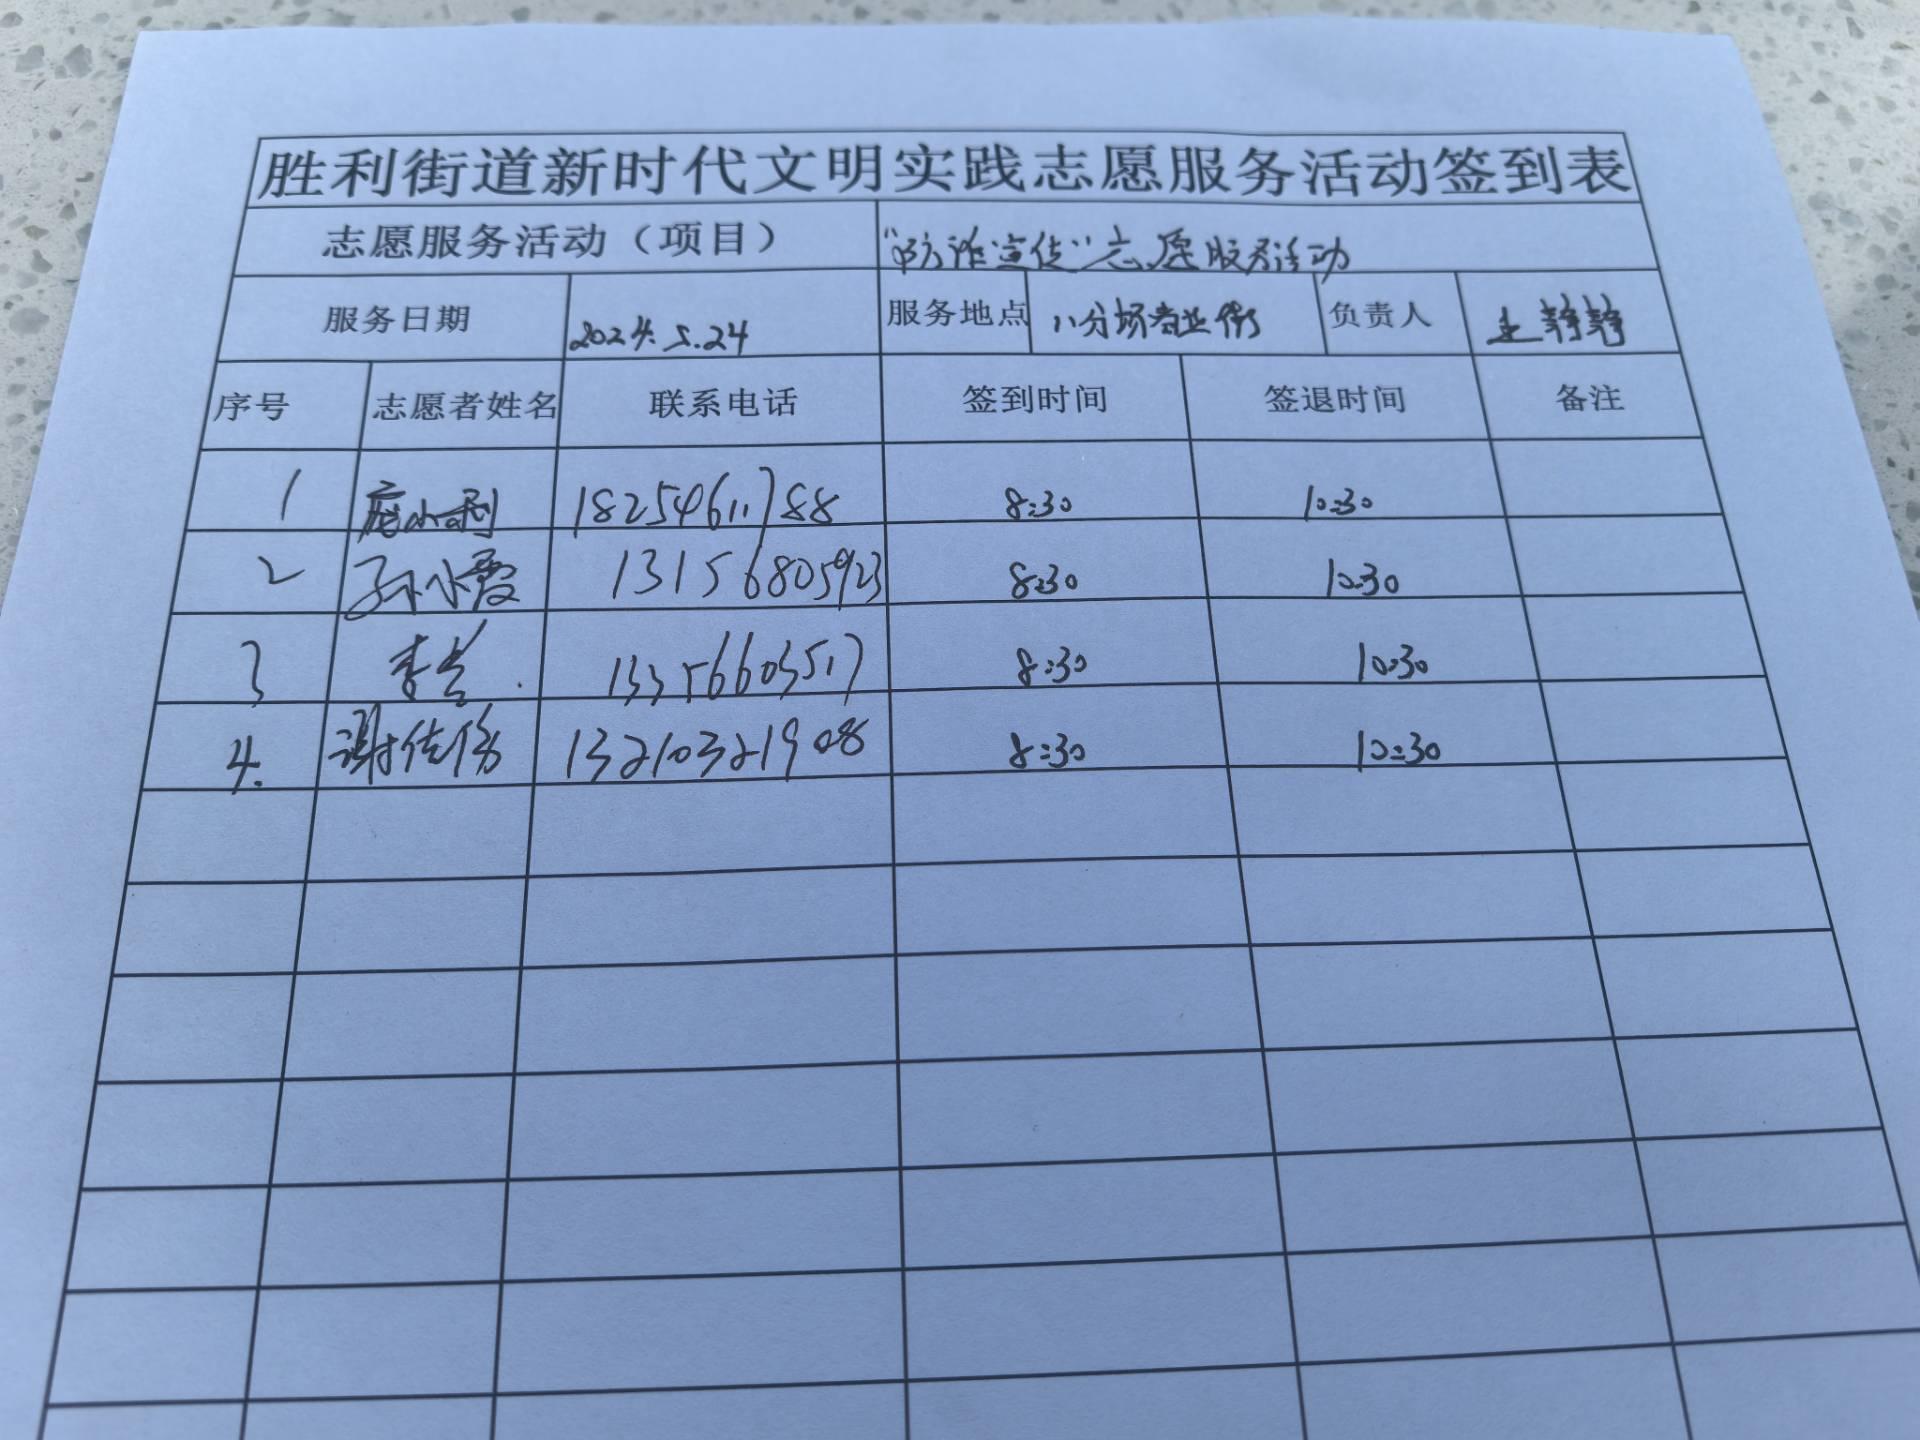 胜利街道新时代文明实践志愿服务活动签到表
志愿服务活动（项目） “防诈宣传”志愿服务活动
服务日期 2024.5.24 服务地点 八分场商业街 负责人 王静静
序号 志愿者姓名 联系电话 签到时间 签退时间 备注
1 庞小利 18254611788 8:30 10:30
2 孙小霞 13156805923 8:30 10:30
3 李兰 13356603517 8:30 10:30
4. 谢佳伤 13210321908 8:30 10:30